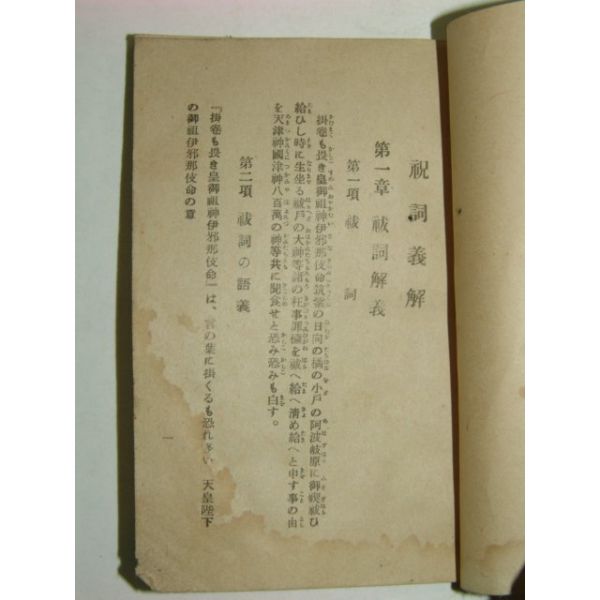 祝詞義解
第一章 祓詞解義
第一項 祓詞
掛巻も畏き皇御祖神伊邪那伎命筑紫の日向の橘の小戸の阿波岐原に御禊祓ひ
給ひし時に生坐る祓戸の大神等諸の枉事罪穢を祓へ給へ淸め給へと申す事の由
を天津神國津神八百萬の神等共に聞食せと恐み恐みも白す。
第二項 祓詞の語義
「掛巻も畏き皇御祖神伊邪那伎命」は、言の葉に掛くるも恐れ多い、天皇陛下
の御祖伊邪那伎命の意
一